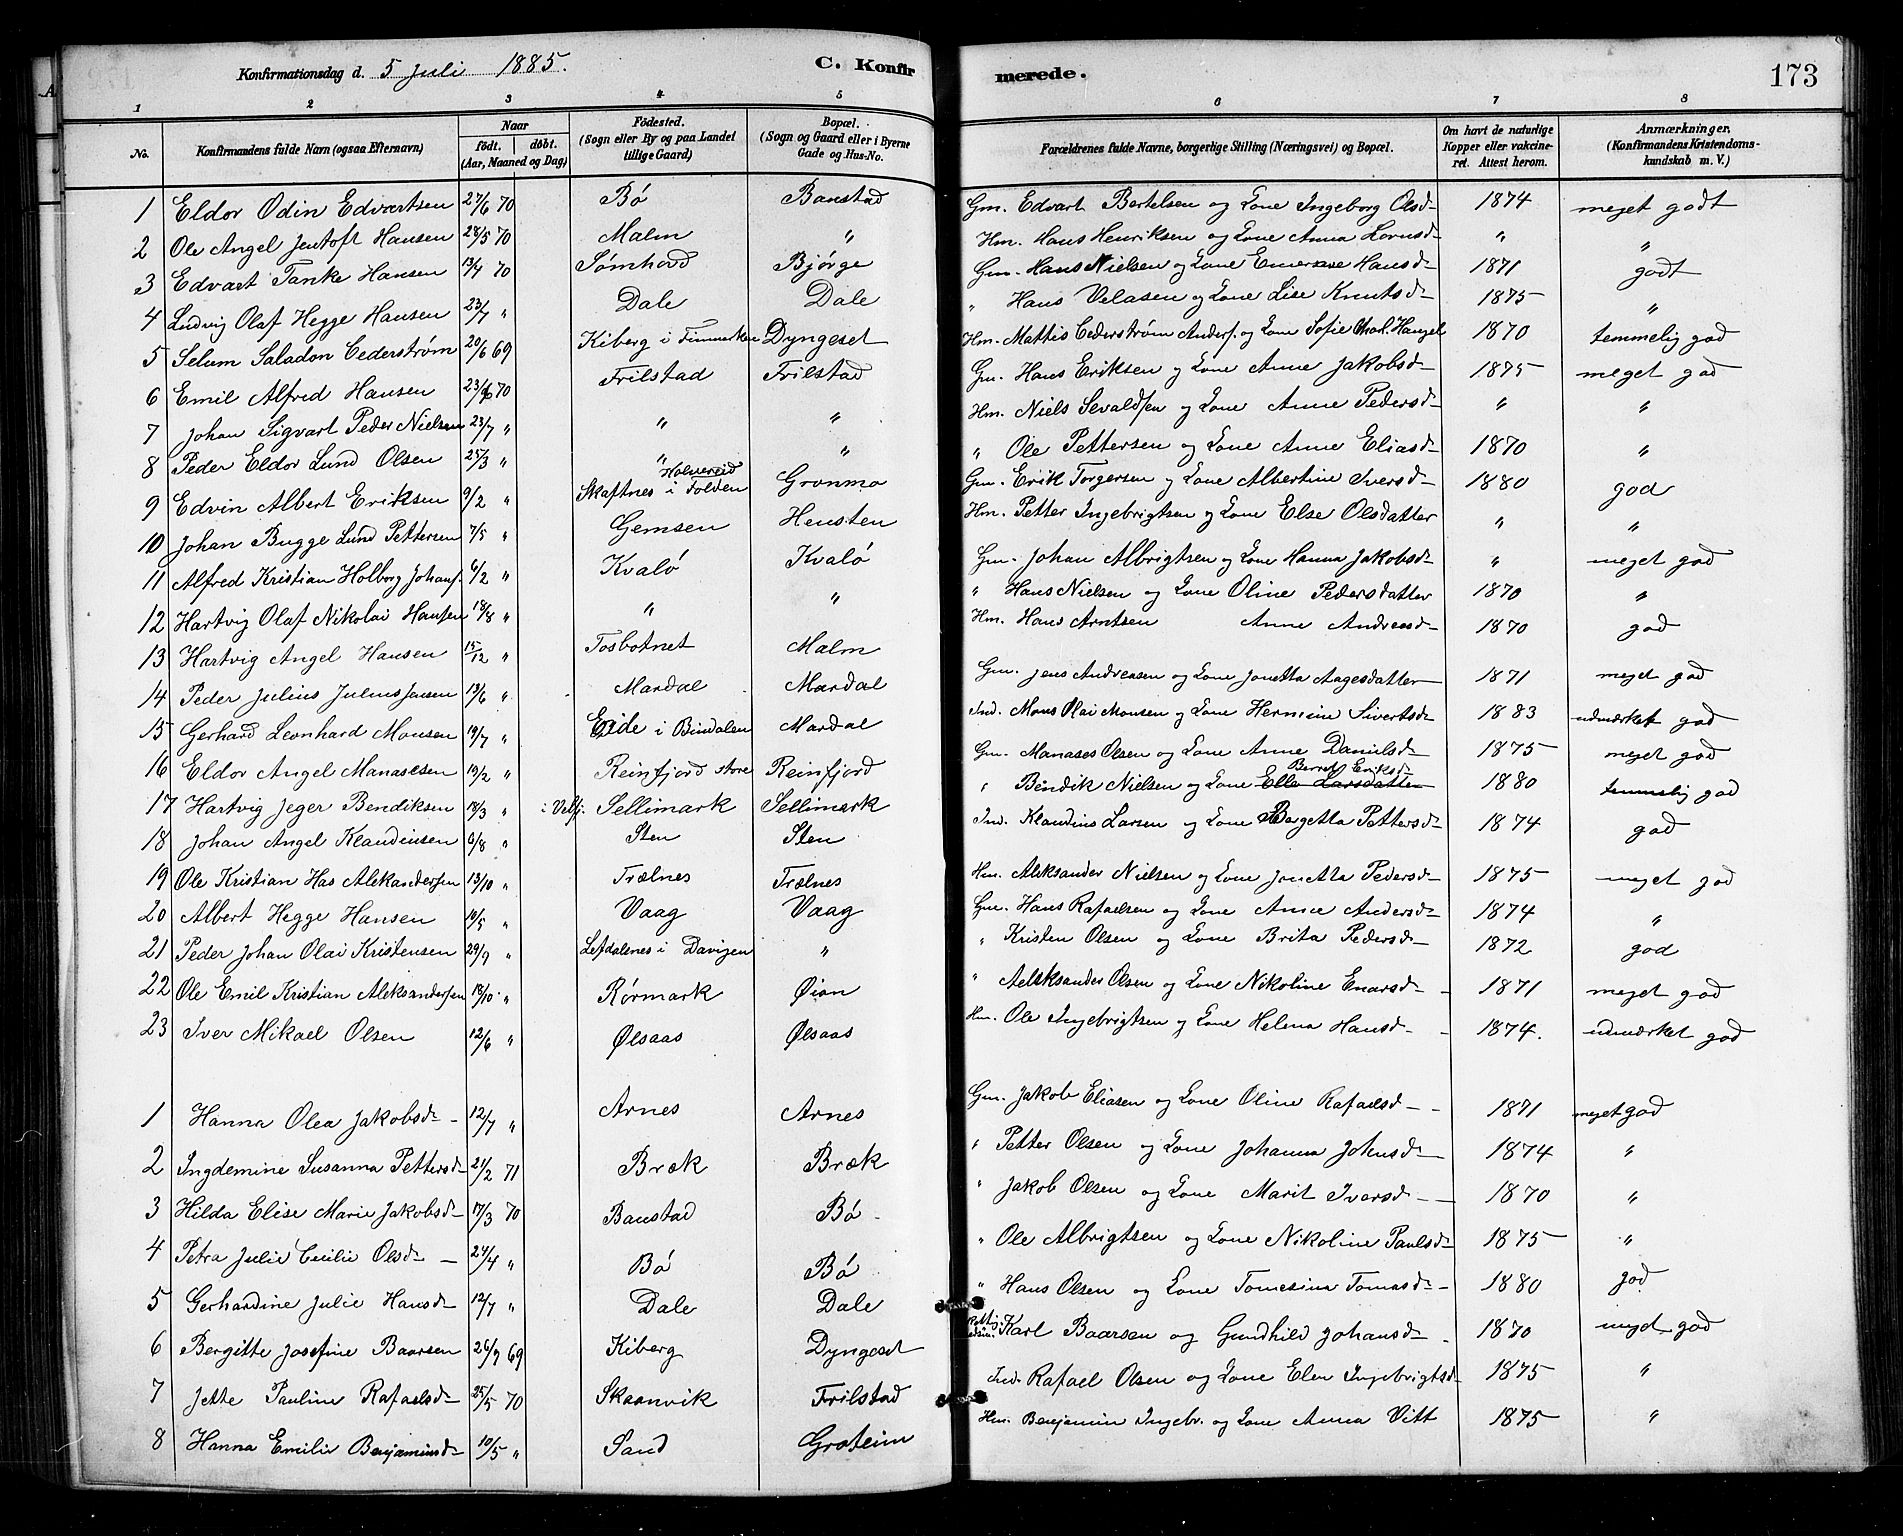 Konfirmationsdag d. 5 Juli 1885. C. Konfirmerede. 173
1 2 3 4 5 6 7 8
No. Konfirmandens fulde Navn (ogsaa Efternavn) Naar födt. döbt. (Aar, Maaned og Dag) Födested. (Sogn eller By og paa Landet tillige Gaard) Bopæl. (Sogn og Gaard eller i Byerne Gade og Hus-No. Forældrenes fulde Navne, borgerlige Stilling (Næringsvei) og Bopæl. Om havt de naturlige Kopper eller vaccineret. Attest herom. Anmærkninger. (Konfirmandens Kristendomskundskab m. V.)
1 Eldor Odin Edvartsen 27/6 70 Bø Banstad Gm. Edvart Bertelsen og Kone Ingeborg Olsd- 1874 meget godt
2 Ole Angel Jentoft Hansen 28/5 70 Malm " Hm. Hans Henriksen og Kone Anna Lornsd- " "
3 Edvart Tanke Hansen 13/7 70 Sømhovd Bjørge Gm. Hans Nielsen og Kone Hansd- 1871 godt
4 Ludvig Olaf Hegge Hansen 23/7 " Dale Dale " Hans Velasen og Kone Lise Knutsd- 1875 "
5 Selum Saladon Cederstrøm 20/6 69 Kiberg i Finmarken Dyngeset Hm. Mattis Cederstrøm Anders. og Kone Sofie Charl. Hangel 1870 temmelig god
6 Emil Alfred Hansen 23/6 70 Frilstad Frilstad Gm. Hans Eriksen og Kone Anne Jakobsd- 1875 meget god
7 Johan Sigvart Peder Nielsen 23/7 " " " Hm. Niels Sevaldsen og Kone Anne Pedersd- " "
8 Peder Eldor Lund Olsen 25/3 " " " " Ole Pettersen og Kone Anne Eliasd- 1870 "
9 Edvin Albert Eriksen 9/2 " Skaftnes i Folden Grønmo Gm. Erik Torgersen og Kone Albertine Iversd- 1880 god
10 Johan Bugge Lund Pettersen 7/5 " Gemsen Hensten Hm. Petter Ingebrigtsen og Kone Else Olsdatter " "
11 Alfred Kristian Holborg Johans. 6/2 " Kvalø Kvalø Gm. Johan Albrigtsen og Kone Hanna Jakobsd- " meget god
12 Hartvig Olaf Nikolai Hansen 18/8 " " " " Hans Nielsen og Kone Oline Pedersdatter 1870 "
13 Hartvig Angel Hansen 15/12 " Tosbotnet Malm Hm. Hans Arntsen Anne Andreasd- 1870 god
14 Peder Julius Julius Jensen 13/6 " Mardal Mardal Gm. Jens Andreasen og Kone Jonetta Aagesdatter 1871 meget god
15 Gerhard Leonhard Monsen 19/7 " Eide i Bindalen Mardal Ind. Mons Olai Monsen og Kone Hermine Sivertsd- 1883 udmærket god
16 Eldor Angel Manasesen 19/2 " Reinfjord store Reinfjord Gm. Manases Olsen og Kone Anne Danielsd- 1875 meget god
17 Hartvig Jeger Bendiksen 18/3 " i Velfj. Sellimark Sellimark " Bendik Nielsen og Kone Elle Larsdatter Berret Eriksd- 1880 temmelig god
18 Johan Angel Klaudiusen 6/8 " Sten Sten Ind. Klaudius Larsen og Kone Bergetta Pettersd- 1874 god
19 Ole Kristian Has Aleksandersen 13/10 " Trælnes Trælnes Hm. Aleksander Nielsen og Kone Jonetta Pedersd- 1875 meget god
20 Albert Hegge Hansen 10/5 " Vaag Vaag Gm. Hans Rafaelsen og Kone Anne Andersd- 1874 "
21 Peder Johan Olai Kristensen 29/9 " Lefdalenes i Davigen " " Kristen Olsen og Kone Brita Pedersd- 1872 god
22 Ole Emil Kristian Aleksandersen 18/10 " Rørmark Øian " Aelsksander Olsen og Kone Nikoline Enarsd- 1871 meget god
23 Iver Mikael Olsen 12/6 " Ølsaas Ølsaas Hm. Ole Ingebrigtsen og Kone Helena Hansd- 1874. udmærket god
1 Hanna Olea Jakobsd- 12/7 " Arnes Arnes Gm. Jakob Eliasen og Kone Oline Rafaelsd- 1871 meget god
2 Ingdemine Susanna Pettersd- 21/2 71 Bræk Bræk " Petter Olsen og Kone Johanna Johnsd- 1874 "
3 Hilda Elise Marie Jakobsd- 17/3 70 Banstad Bø " Jakob Olsen og Kone Marit Iversd- 1870 "
4 Petra Julie Cecilie Olsd- 24/4 " Bø Bø " Ole Albrigtsen og Kone Nikoline Paulsd- 1875 "
5 Gerhardine Julie Hansd- 12/7 " Dale Dale " Hans Olsen og Kone Tomesina Tomasd- 1880 god
6 Bergitte Josefine Baarsen 26/7 69 Kiberg Dyngeset Karl Baarsen og Gundhild Johansd- 1870 meget god
7 Jette Pauline Rafaelsd- 25/5 70 Skaanvik Frilstad Ind. Rafael Olsen og Kone Elen Ingebrigtsd- 1875 "
8 Hanna Emilie Benjaminsd- 10/5 " Sand Groteim Hm. Benjamin Ingebr. og Kone Anna Vitt 1875 "